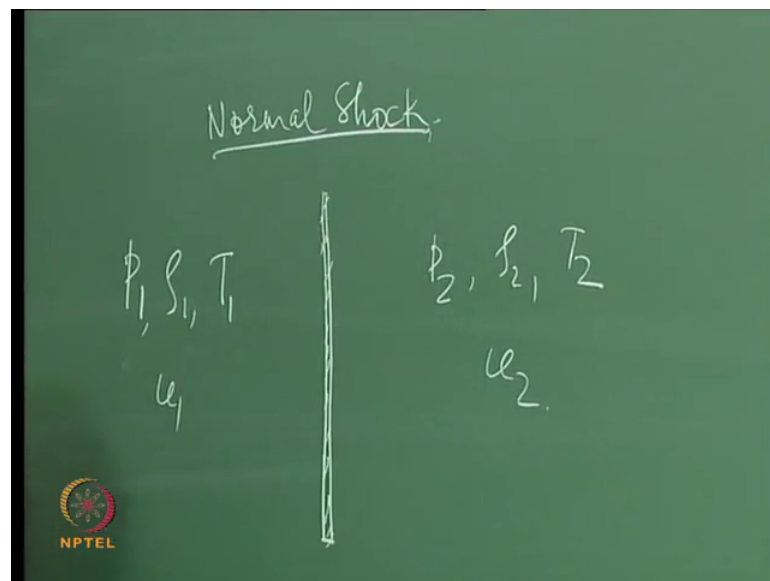 Normal Shock.
P₁, ρ₁, T₁
P₂, ρ₂, T₂
u₁
u₂.
NPTEL